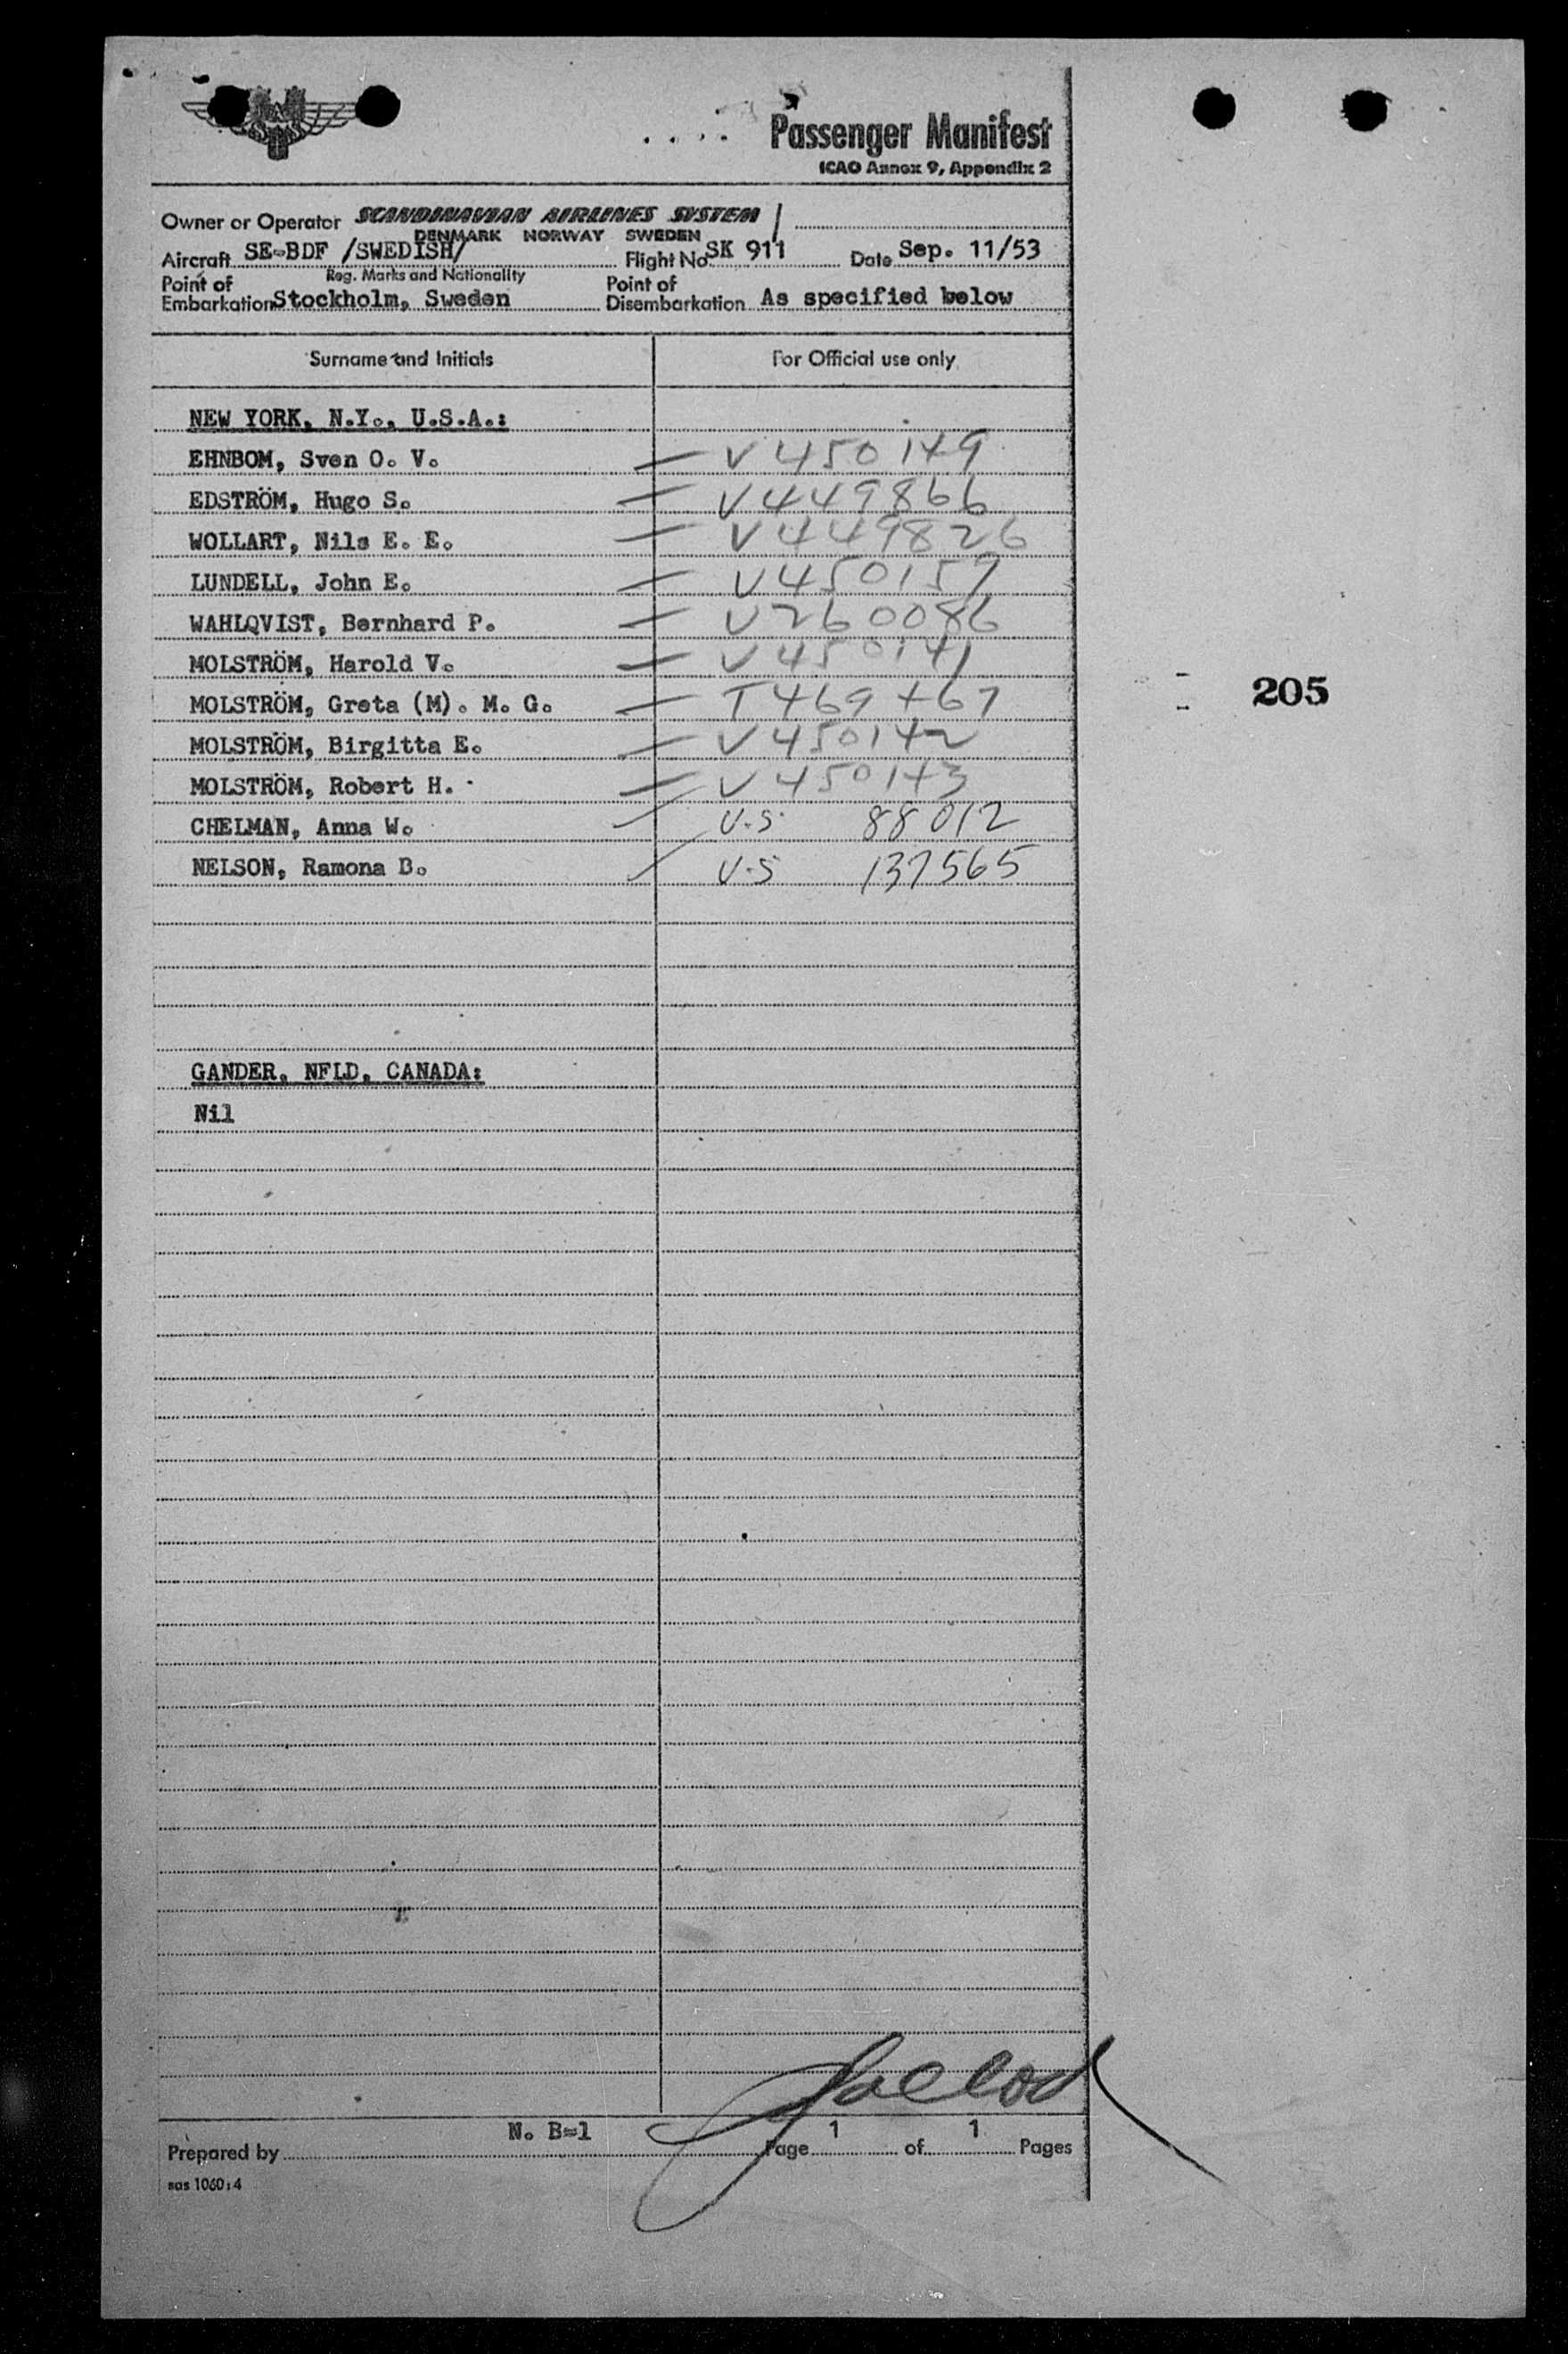 SAS
Passenger Manifest
ICAO Annex 9, Appendix 2
Owner or Operator SCANDINAVIAN AIRLINES SYSTEM
DENMARK NORWAY SWEDEN
Aircraft SE-BDF /SWEDISH/ Flight No SK 911 Date Sep. 11/53
Reg. Marks and Nationality
Point of Embarkation Stockholm, Sweden Point of Disembarkation As specified below
Surname and Initials For Official use only
NEW YORK, N.Y., U.S.A.:
EHNBOM, Sven O. V. V450149
EDSTRÖM, Hugo S. V449866
WOLLART, Nils E. E. V449826
LUNDELL, John E. V450159
WAHLQVIST, Bernhard P. V260086
MOLSTRÖM, Harold V. V450141
MOLSTRÖM, Greta (M). M. G. T469467
MOLSTRÖM, Birgitta E. V450142
MOLSTRÖM, Robert H. V450143
CHELMAN, Anna W. U.S. 88012
NELSON, Ramona B. U.S 137565
205
GANDER, NFLD, CANADA:
Nil
N. B=1
Prepared by Page 1 of 1 Pages
sas 1060:4